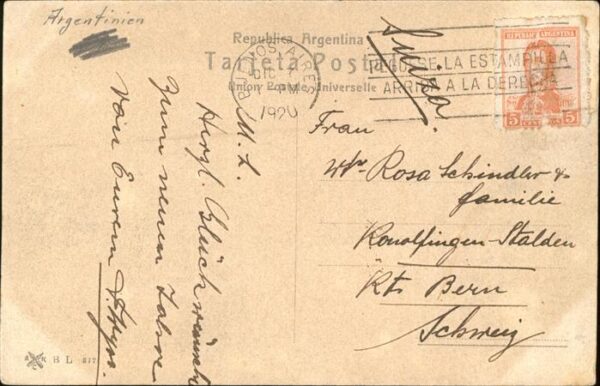 Argentinien
Republica Argentina
Tarjeta Postal
Union Postale Universelle
BUENOS AIRES
DIC
PM
1920
PEGUESE LA ESTAMPILLA
ARRIBA A LA DERECHA
REPUBLICA ARGENTINA
5 5
Suiza.
M. L.
Herzl. Glückwünsche
zum neuen Jahre
von Eurem
Frau
Wwe Rosa Schindler &
familie
Konolfingen-Stalden
Kt. Bern
Schweiz
B L